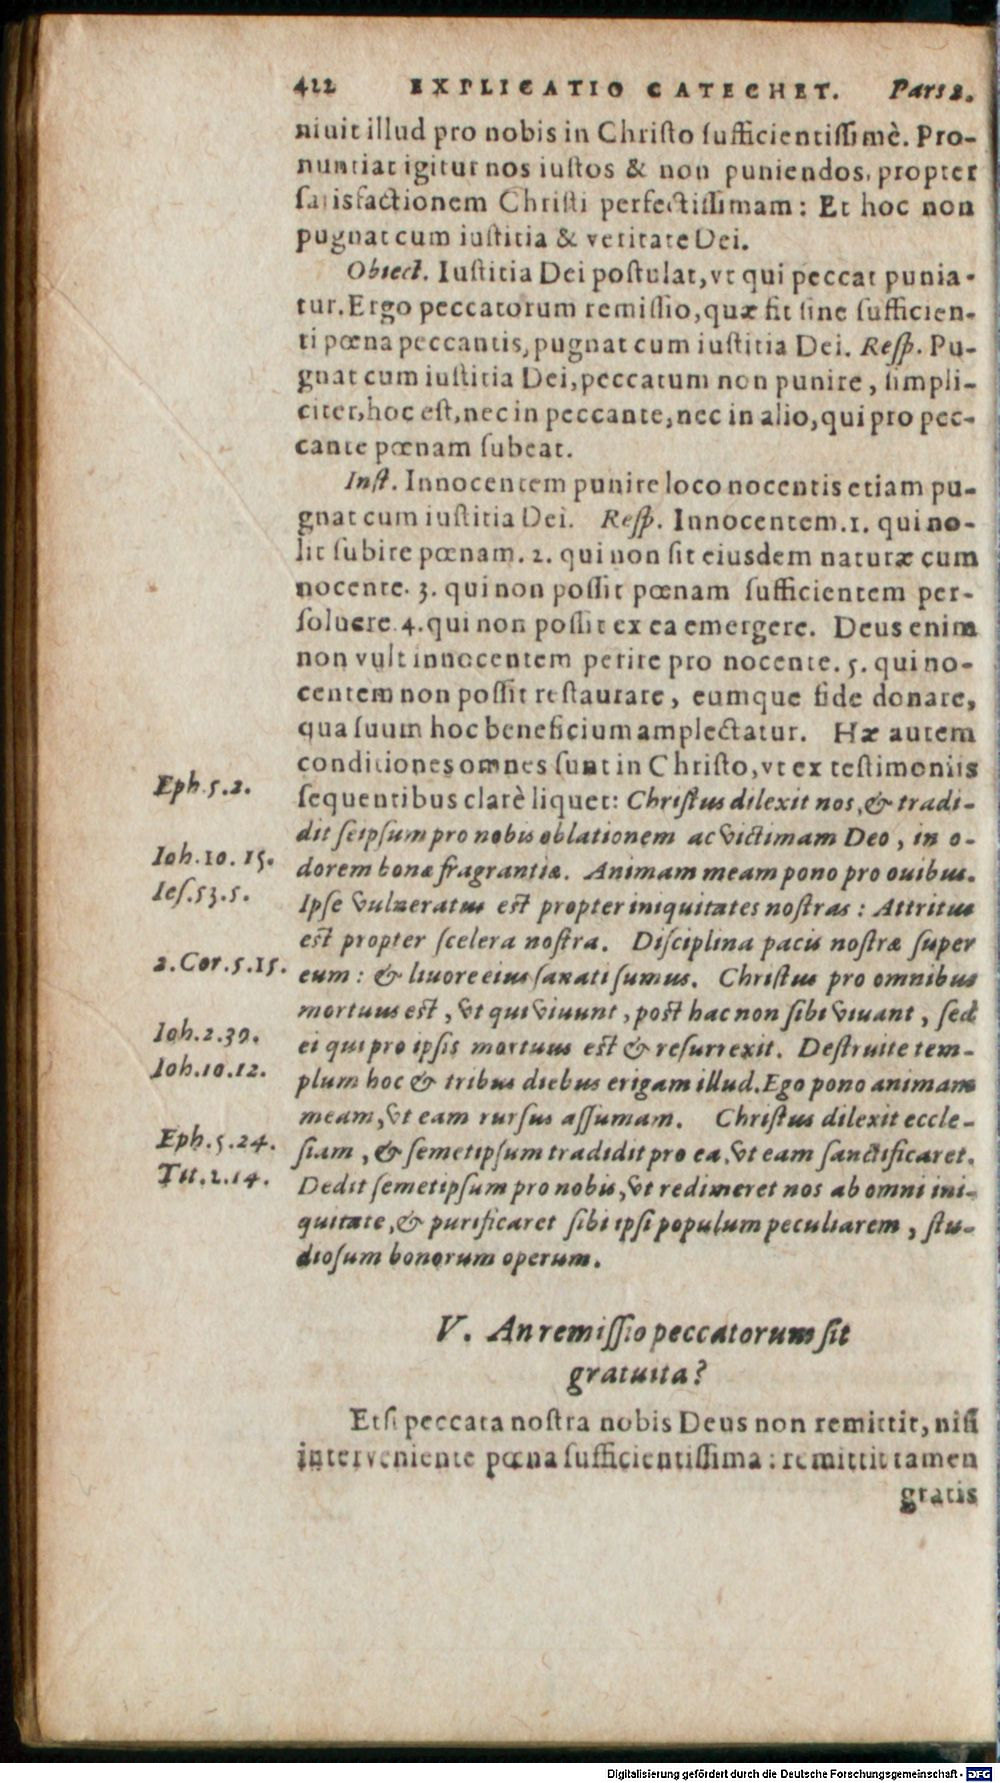 422 EXPLICATIO CATECHET. Pars 2.
niuit illud pro nobis in Christo sufficientissimè. Pro-
nuntiat igitur nos iustos & non puniendos, propter
satisfactionem Christi perfectissimam: Et hoc non
pugnat cum iustitia & veritate Dei.
Obiect. Iustitia Dei postulat, vt qui peccat punia-
tur. Ergo peccatorum remissio, quæ fit sine sufficien-
ti pœna peccantis, pugnat cum iustitia Dei. Resp. Pu-
gnat cum iustitia Dei, peccatum non punire, simpli-
citer, hoc est, nec in peccante, nec in alio, qui pro pec-
cante pœnam subeat.
Inst. Innocentem punire loco nocentis etiam pu-
gnat cum iustitia Dei. Resp. Innocentem. 1. qui no-
lit subire pœnam. 2. qui non sit eiusdem naturæ cum
nocente. 3. qui non possit pœnam sufficientem per-
soluere. 4. qui non possit ex ea emergere. Deus enim
non vult innocentem perire pro nocente. 5. qui no-
centem non possit restaurare, eumque fide donare,
qua suum hoc beneficium amplectatur. Hæ autem
conditiones omnes sunt in Christo, vt ex testimoniis
Eph. 5. 2.
sequentibus clarè liquet: Christus dilexit nos, & tradi-
dit seipsum pro nobis oblationem ac victimam Deo, in o-
Ioh. 10. 15.
dorem bonæ fragrantiæ. Animam meam pono pro ouibus.
Ies. 53. 5.
Ipse vulneratus est propter iniquitates nostras: Attritus
est propter scelera nostra. Disciplina pacis nostræ super
2. Cor. 5. 15.
eum: & liuore eius sanati sumus. Christus pro omnibus
mortuus est, vt qui viuunt, post hac non sibi viuant, sed
Ioh. 2. 39.
ei qui pro ipsis mortuus est & resurrexit. Destruite tem-
Ioh. 10. 12.
plum hoc & tribus diebus erigam illud. Ego pono animam
meam, vt eam rursus assumam. Christus dilexit eccle-
Eph. 5. 24.
siam, & semetipsum tradidit pro ea, vt eam sanctificaret.
Tit. 2. 14.
Dedit semetipsum pro nobis, vt redimeret nos ab omni ini-
quitate, & purificaret sibi ipsi populum peculiarem, stu-
diosum bonorum operum.
V. An remissio peccatorum sit
gratuita?
Etsi peccata nostra nobis Deus non remittit, nisi
interveniente pœna sufficientissima: remittit tamen
gratis
Digitalisierung gefördert durch die Deutsche Forschungsgemeinschaft - DFG